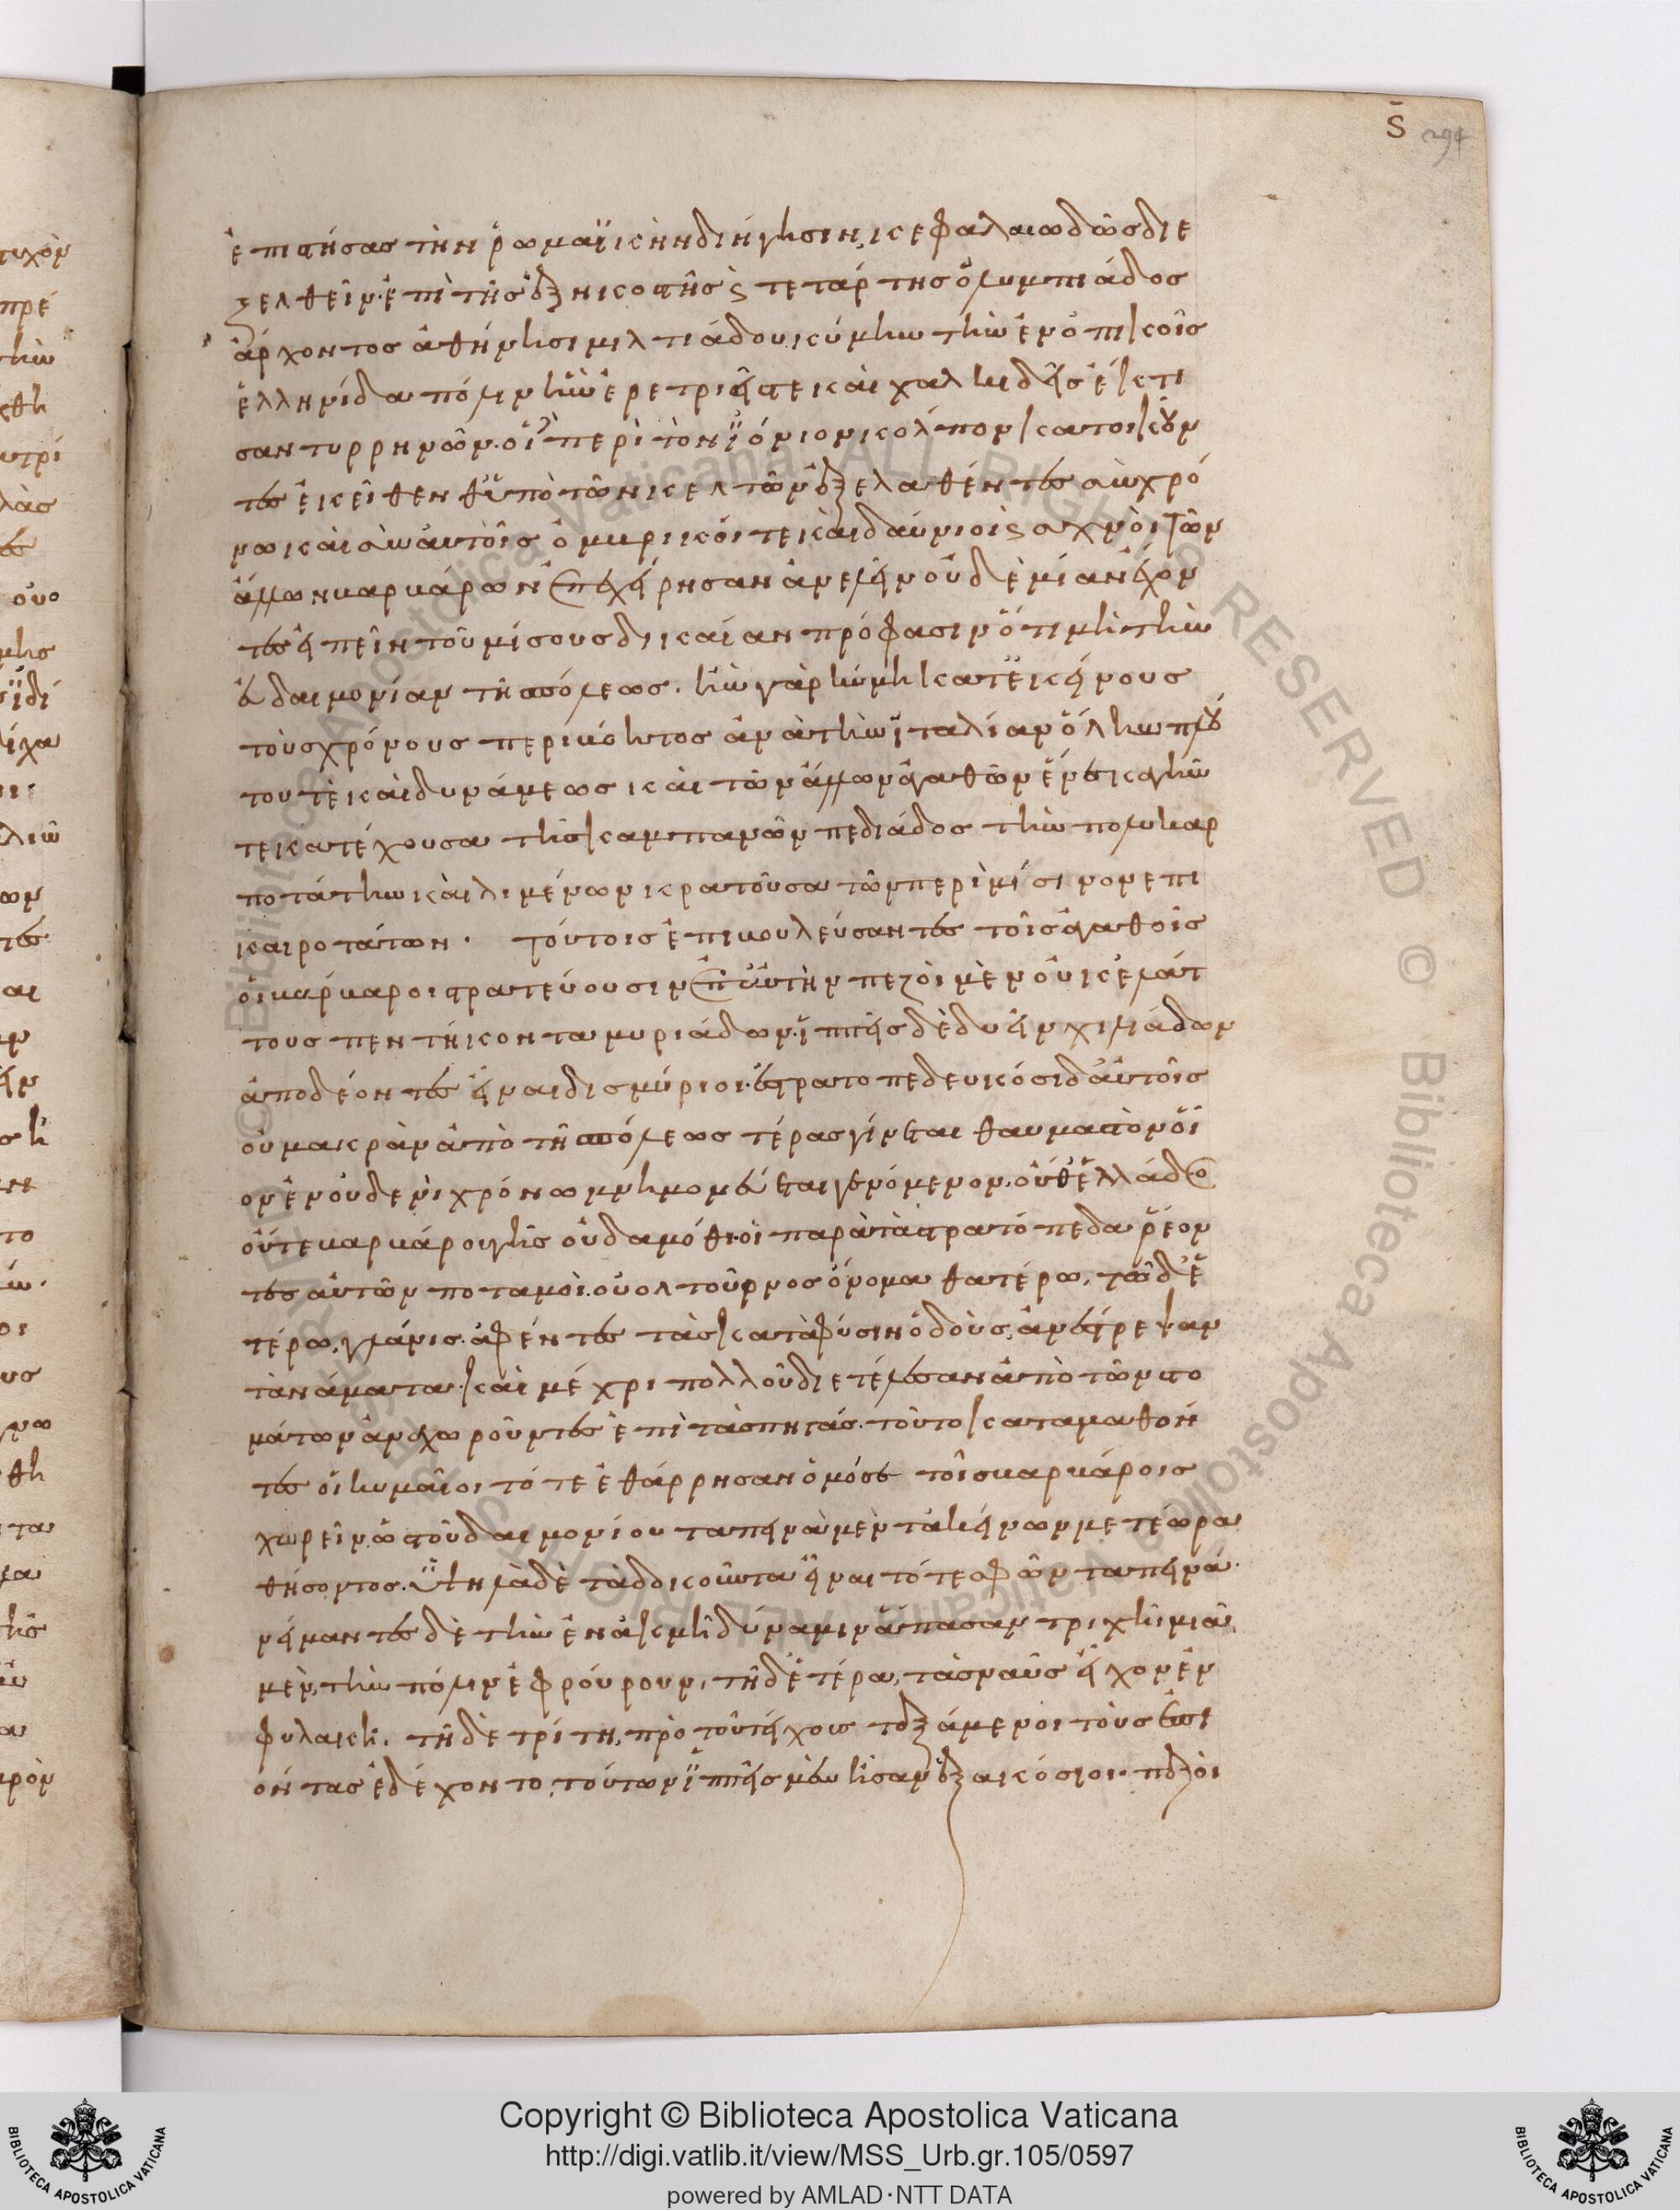 S̄ 294
ἐπιστήσας τὴν ῥωμαϊκὴν διήγησιν, κεφαλαιωδῶς διε
ξελθεῖν. ἐπὶ τῆς ἑξηκοστῆς ϛ τετάρτης ὀλυμπιάδος
ἄρχοντος ἀθήνησι μιλτιάδου. κύμην τὴν ἐν ὀπικοῖς
ἑλληνίδα πόλιν ἣν ἐρετριεῖς τε καὶ χαλκιδεῖς ἔκτι
σαν τυρρηνῶν. οἳ περὶ τὸν ἰόνιον κόλπον κατοικοῦν
τες ἐκεῖθεν θ' ὑπὸ τῶν κελτῶν ἐξελαθέντες σὺν χρό
νω καὶ σὺν αὐτοῖς ὀμβρικοί τε καὶ δαύνιοι ϛ συχνοὶ τῶν
ἄλλων βαρβάρων ἐπεχείρησαν ἀνελεῖν οὐδεμίαν ἔχον
τες εἰπεῖν τοῦ μίσους δικαίαν πρόφασιν ὅτι μὴ τὴν
εὐδαιμονίαν τῆς πόλεως. ἦν γὰρ κύμη κατ' ἐκείνους
τοὺς χρόνους περιβόητος ἀνὰ τὴν ἰταλίαν ὅλην πλού
του τὲ καὶ δυνάμεως καὶ τῶν ἄλλων ἀγαθῶν ἕνεκα γῆν
τε κατέχουσα τῆς καμπανῶν πεδιάδος τὴν πολυκαρ
ποτάτην καὶ λιμένων κρατοῦσα τῶν περὶ μίσινον ἐπι
καιροτάτων. τούτοις ἐπιβουλεύσαντες τοῖς ἀγαθοῖς
οἱ βάρβαροι στρατεύουσιν ἐπ' αὐτὴν πεζοὶ μὲν οὐκ ἐλάτ
τους πεντήκοντα μυριάδων. ἱππεῖς δὲ δυεῖν χιλιάδων
ἀποδέοντες εἶναι δισμύριοι. ἐστρατοπεδευκόσι δ' αὐτοῖς
οὐ μακρὰν ἀπὸ τῆς πόλεως τέρας γίνεται θαυμαστὸν οἷ
ον ἐν οὐδενὶ χρόνω μνημονεύεται γενόμενον. οὔθ' ἑλλάδος
οὔτε βαρβάρου γῆς οὐδαμόθι. οἱ παρὰ τὰ στρατόπεδα ῥέον
τες αὐτῶν ποταμοί. οὐολτοῦρνος ὄνομα θατέρω, τῶ δ' ἑ
τέρω, γλάνις. ἀφέντες τὰς κατὰ φύσιν ὁδοὺς, ἀνέστρεψαν
τὰ νάματα. καὶ μέχρι πολλοῦ διετέλεσαν ἀπὸ τῶν στο
μάτων ἀναχωροῦντες ἐπὶ τὰς πηγάς. τοῦτο καταμαθόν
τες οἱ κυμαῖοι τότε ἐθάρρησαν ὁμόσε τοῖς βαρβάροις
χωρεῖν ὡς τοῦ δαιμονίου ταπεινὰ μὲν τὰ κείνων μετέωρα
θήσοντος. ὑψηλὰ δὲ τὰ δοκοῦντα εἶναι τότε σφῶν ταπεινά.
νείμαντες δὲ τὴν ἐν ἀκμῆ δύναμιν ἅπασαν τριχῆ μιᾶ
μὲν, τὴν πόλιν ἐφρούρουν, τῆ δ' ἑτέρα, τὰς ναῦς εἶχον ἐν
φυλακῆ. τῆ δὲ τρίτη, πρὸ τοῦ τείχους ταξάμενοι τοὺς ἐπι
όντας ἐδέχοντο. τούτων ἱππεῖς μὲν ἦσαν ἑξακόσιοι. πεζοὶ
Copyright © Biblioteca Apostolica Vaticana
http://digi.vatlib.it/view/MSS_Urb.gr.105/0597
powered by AMLAD·NTT DATA
BIBLIOTECA APOSTOLICA VATICANA
BIBLIOTECA APOSTOLICA VATICANA